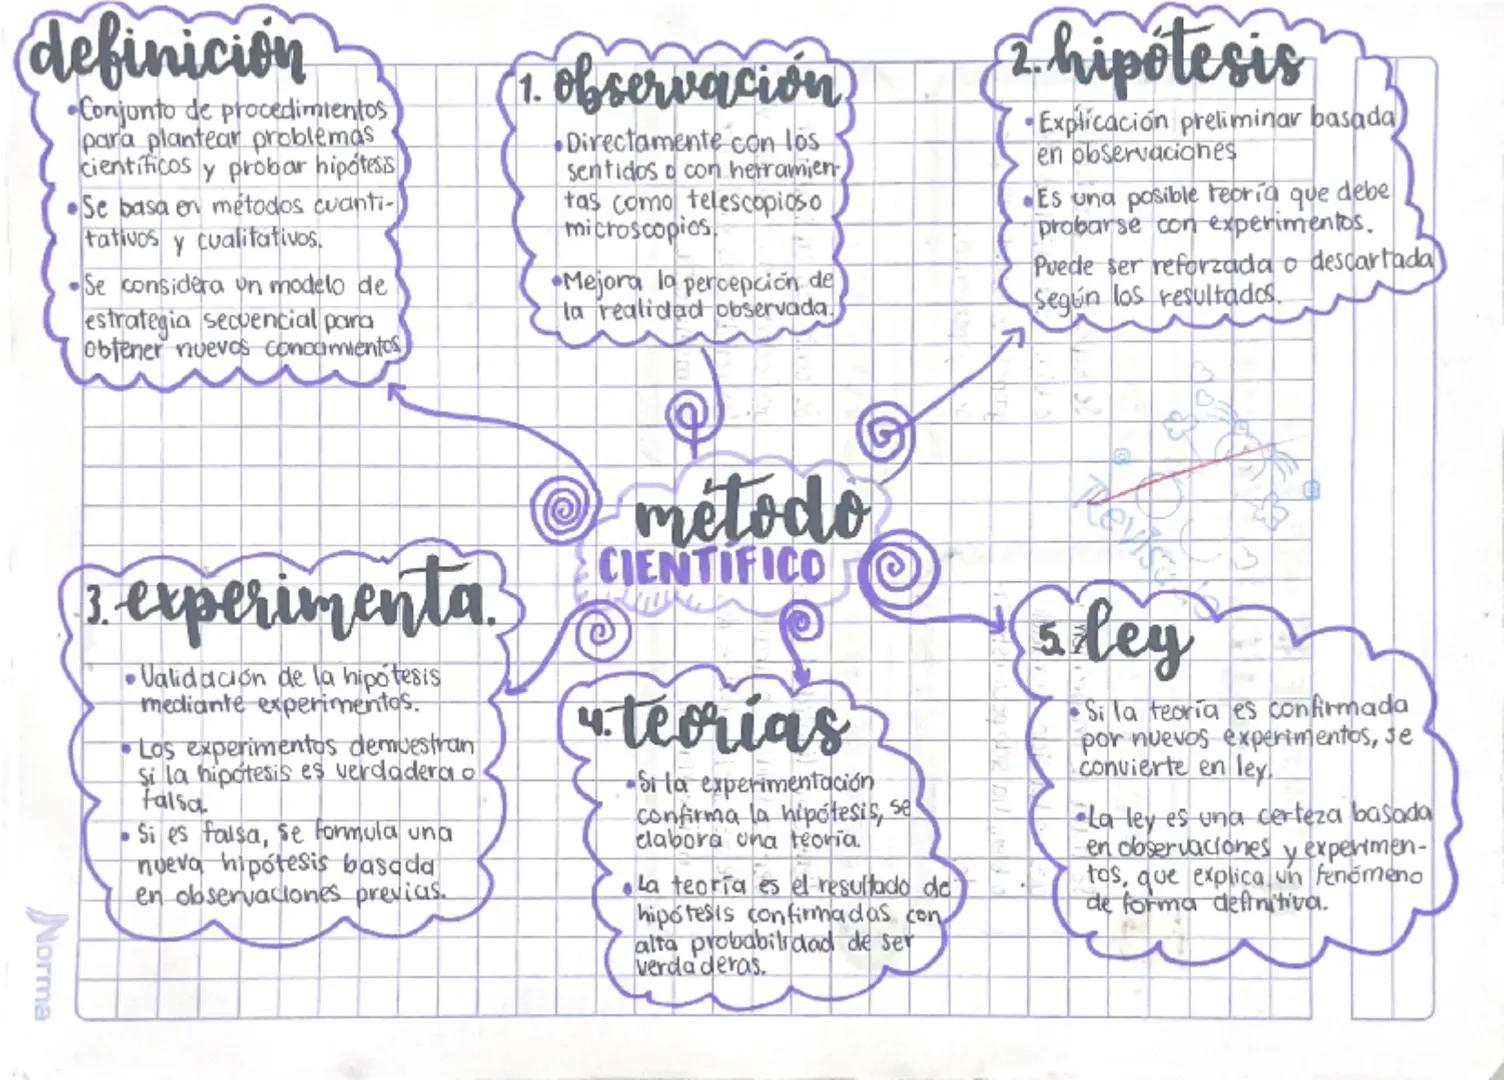 definición
•Conjunto de procedimientos
para plantear problemas
científicos y probar hipótesis
•Se basa en métodos cuanti-
tativos y cualitativos.
•Se considera un modelo de
estrategia secuencial para
obtener nuevos conocimientos
1. observación
•Directamente con los
sentidos o con herramien-
tas como telescopios o
microscopios.
•Mejora la percepción de
la realidad observada.
2. hipótesis
•Explicación preliminar basada
en observaciones
•Es una posible teoría que debe
probarse con experimentos.
Puede ser reforzada o descartada
según los resultados.
método
CIENTÍFICO
Revisado
3. experimenta.
•Validación de la hipótesis
mediante experimentos.
•Los experimentos demuestran
si la hipótesis es verdadera o
falsa.
•Si es falsa, se formula una
nueva hipótesis basada
en observaciones previas.
4. teorías
•Si la experimentación
confirma la hipótesis, se
elabora una teoría.
•La teoría es el resultado de
hipótesis confirmadas con
alta probabilidad de ser
verdaderas.
5. ley
•Si la teoría es confirmada
por nuevos experimentos, se
convierte en ley.
•La ley es una certeza basada
en observaciones y experimen-
tos, que explica un fenómeno
de forma definitiva.
Norma